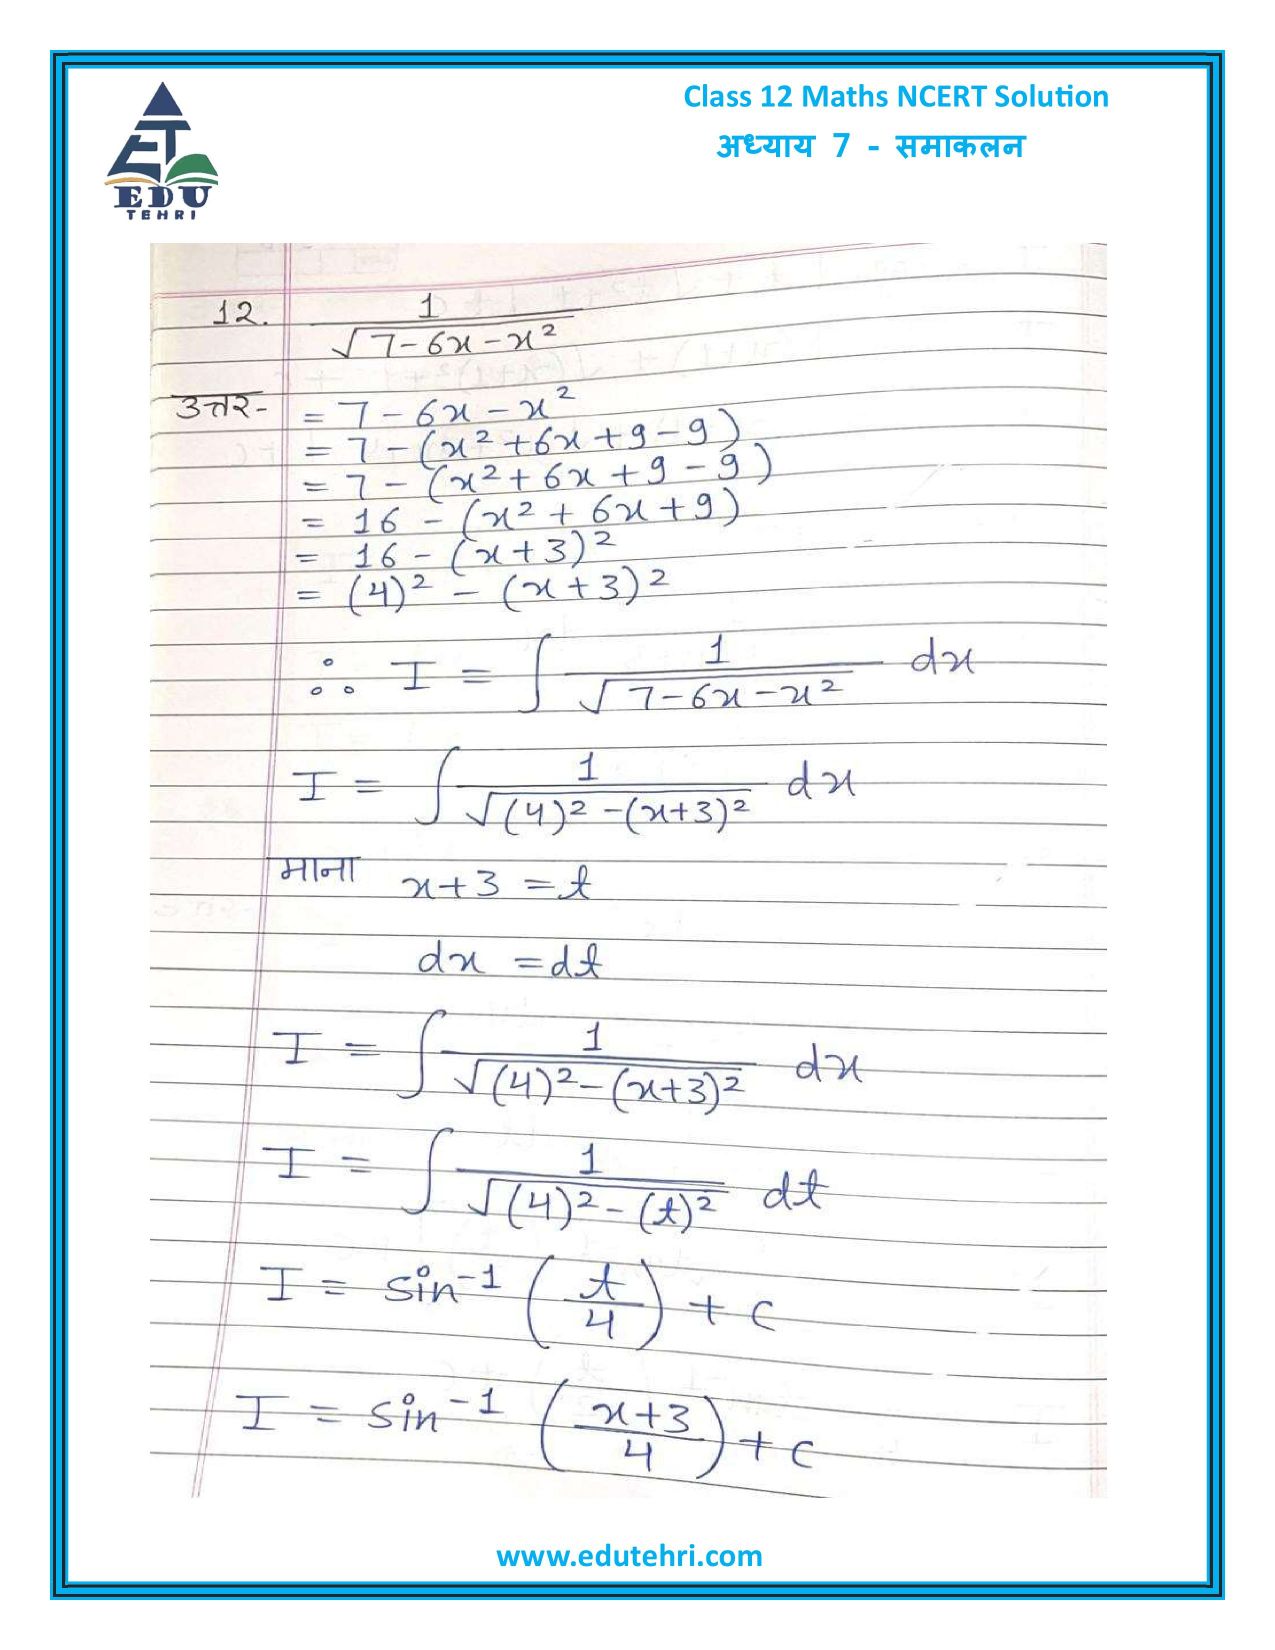 Class 12 Maths NCERT Solution
अध्याय 7 - समाकलन
EDU
TEHRI
12. 1/√(7-6x-x²)
उत्तर- = 7-6x-x²
= 7-(x²+6x+9-9)
= 7-(x²+6x+9-9)
= 16-(x²+6x+9)
= 16-(x+3)²
= (4)²-(x+3)²
∴ I = ∫ 1/√(7-6x-x²) dx
I = ∫ 1/√((4)²-(x+3)²) dx
माना x+3 = t
dx = dt
I = ∫ 1/√((4)²-(x+3)²) dx
I = ∫ 1/√((4)²-(t)²) dt
I = sin⁻¹ (t/4) + c
I = sin⁻¹ (x+3/4) + c
www.edutehri.com